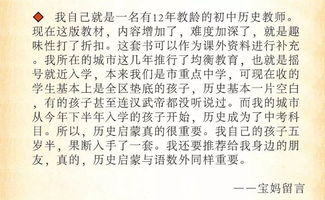 我自己就是一名有12年教龄的初中历史教师。
现在这版教材，内容增加了，难度加深了，就是趣
味性打了折扣。这套书可以作为课外资料进行补充
。我所在的城市这几年推行了均衡教育，也就是摇
号就近入学，本来我们是市重点中学，可现在收的
学生基本上是全区垫底的孩子，历史基本一片空白
，有的孩子甚至连汉武帝都没听说过。而我的城市
从今年下半年入学的孩子开始，历史成为了中考科
目。所以，历史启蒙真的很重要。我自己的孩子五
岁半，果断入手了一套。我还要推荐给我身边的朋
友，真的，历史启蒙与语数外同样重要。
——宝妈留言